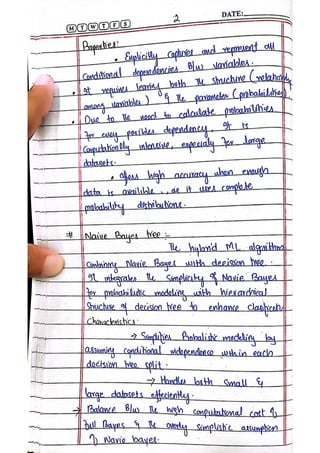 2
DATE:
M T W T F S
Properties:
• Explicitly captures and represent all
conditional dependencies B/w variables.
• It requires learing both the structure (relationship
among variables) & the parameter (probabilities)
• Due to the need to calculate probabilities
for every possible dependency, It is
computationally intensive, especially for large
datasets.
• offers high accuracy when enough
data is availible, as it uses complete
probability distributions.
# Naive Bayes tree :-
The hybrid ML algorithm
combining Navie Bayes with decision tree.
It integrates the simplicity of Navie Bayes
for probabilistic modeling with hierarchical
structure of decision tree to enhance
Characteristics:
→ Simplifies Probalistic modeling by
assuming conditional independence within each
decision tree split.
→ Handles both small &
large datasets effeciently.
→ Balance B/w the high computational cost of
full Bayes & the overly simplistic assumption
of Navie bayes.